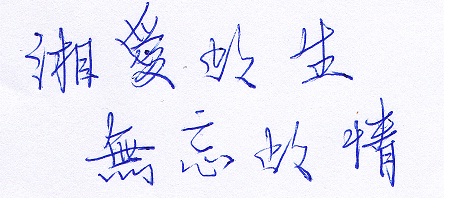 湘愛於生
無忘於情